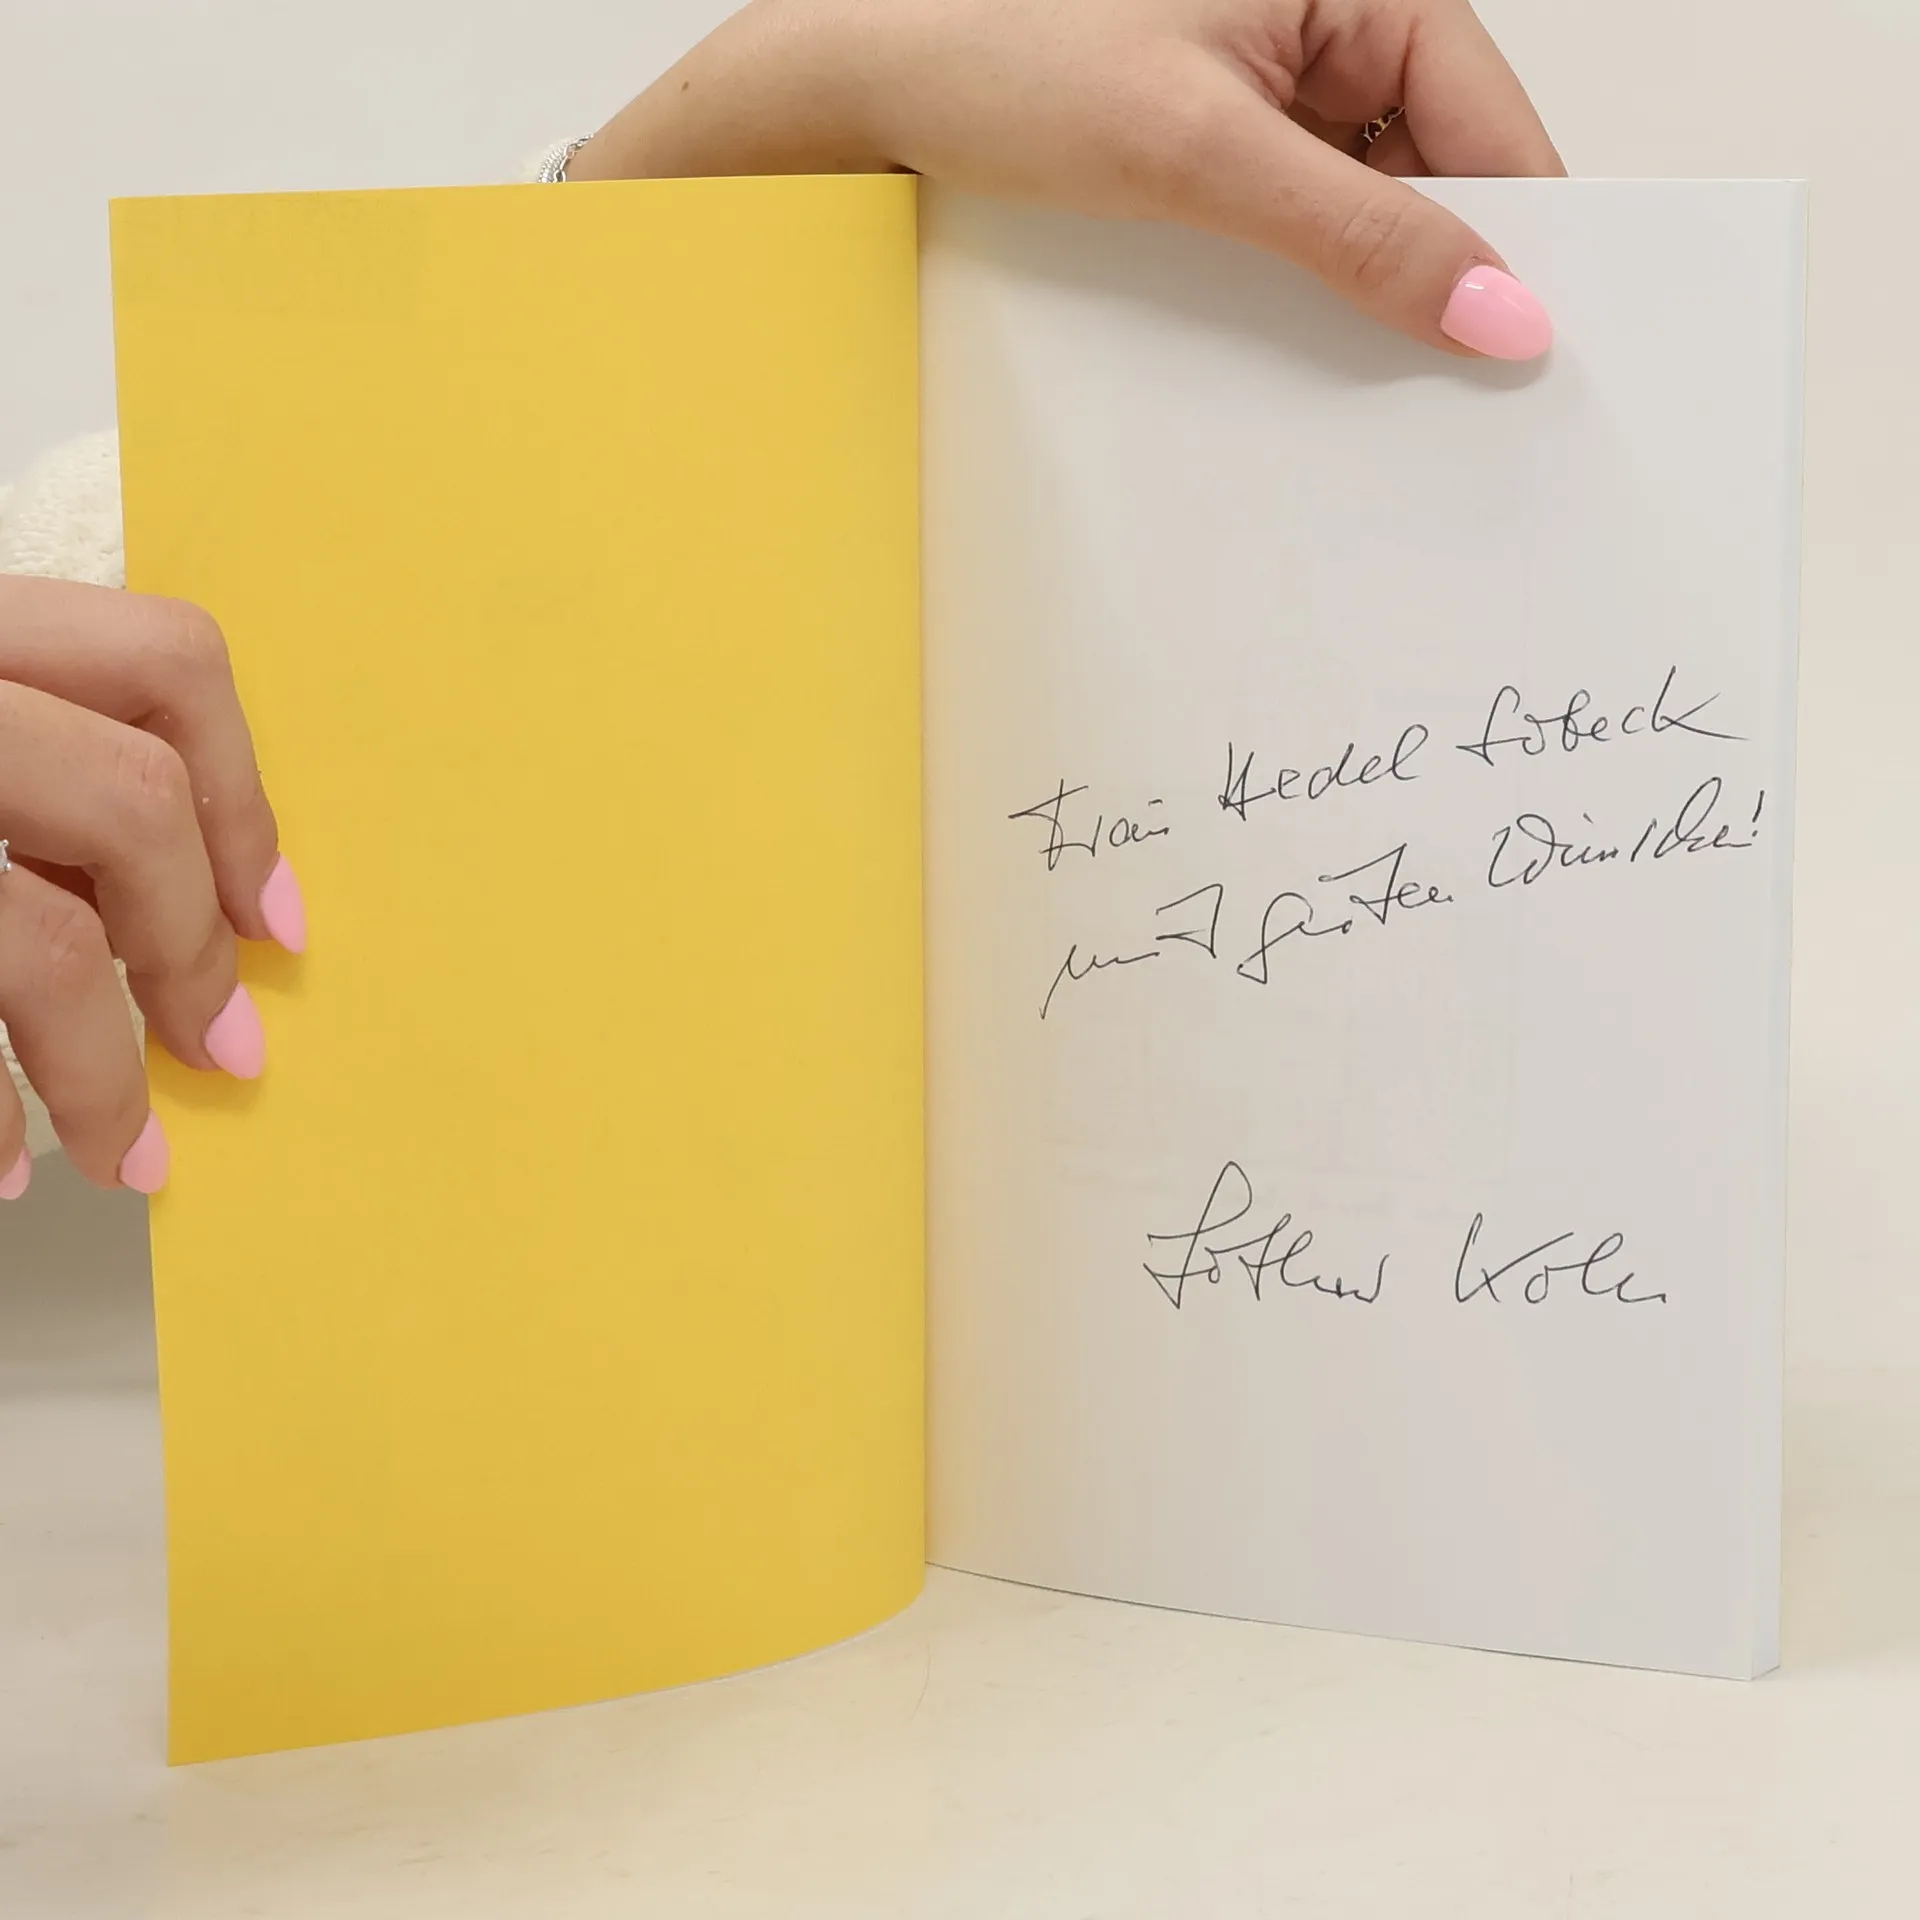 Frau Hedel Lobeck
mit guten Wünschen!
Lothar Kolm